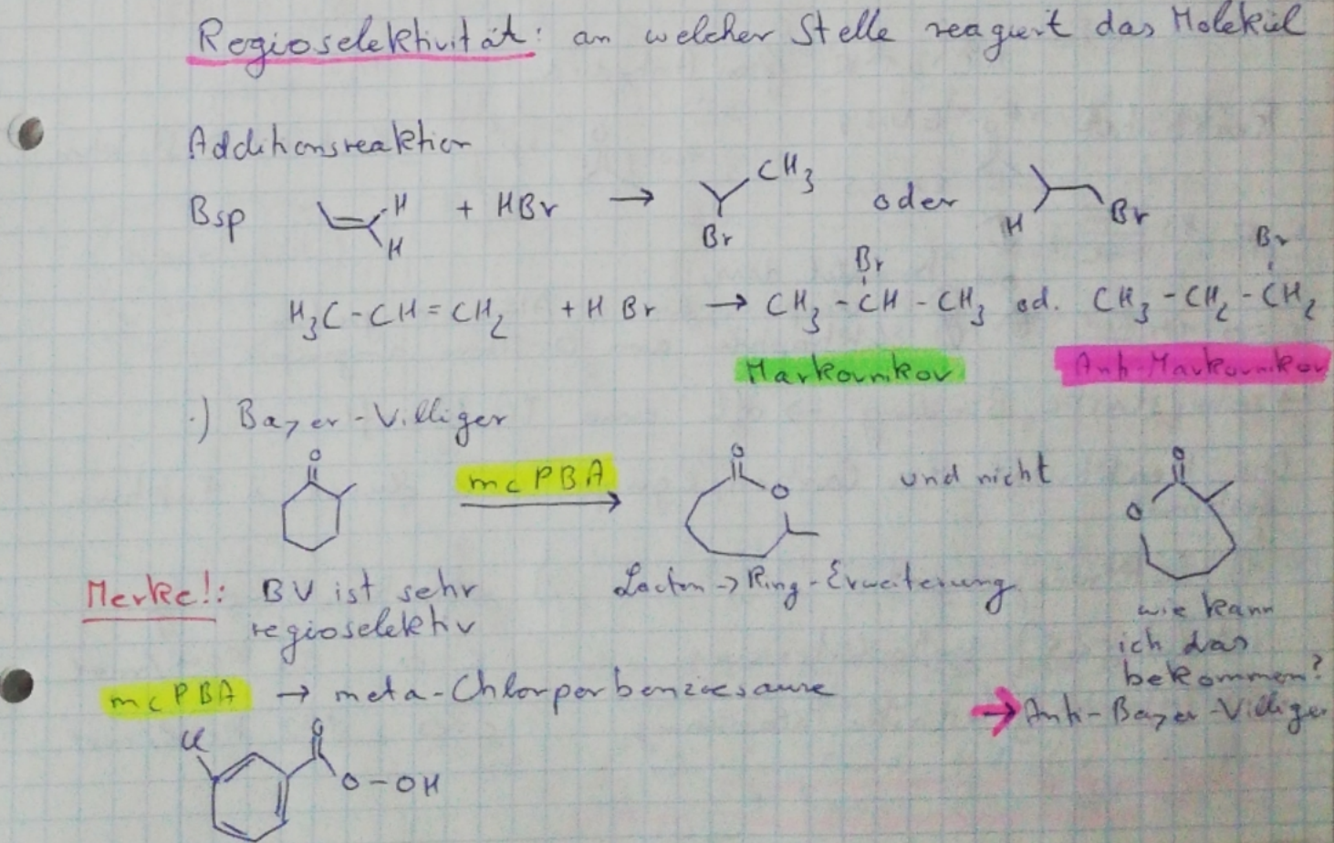 Regioselektivität: an welcher Stelle reagiert das Molekül
Additionsreaktion
Bsp H H + HBr → CH3 Br oder H Br
H3C-CH=CH2 + HBr → CH3-CH-CH3 od. CH3-CH2-CH2
Br Br
Markovnikov Anti-Markovnikov
·) Bayer-Villiger
O mcPBA O O und nicht O O
Merke!: BV ist sehr Lacton → Ring-Erweiterung
regioselektiv
wie kann
ich das
bekommen?
→ Anti-Bayer-Villiger
mcPBA → meta-Chlorperbenzoesäure
Cl O O-OH